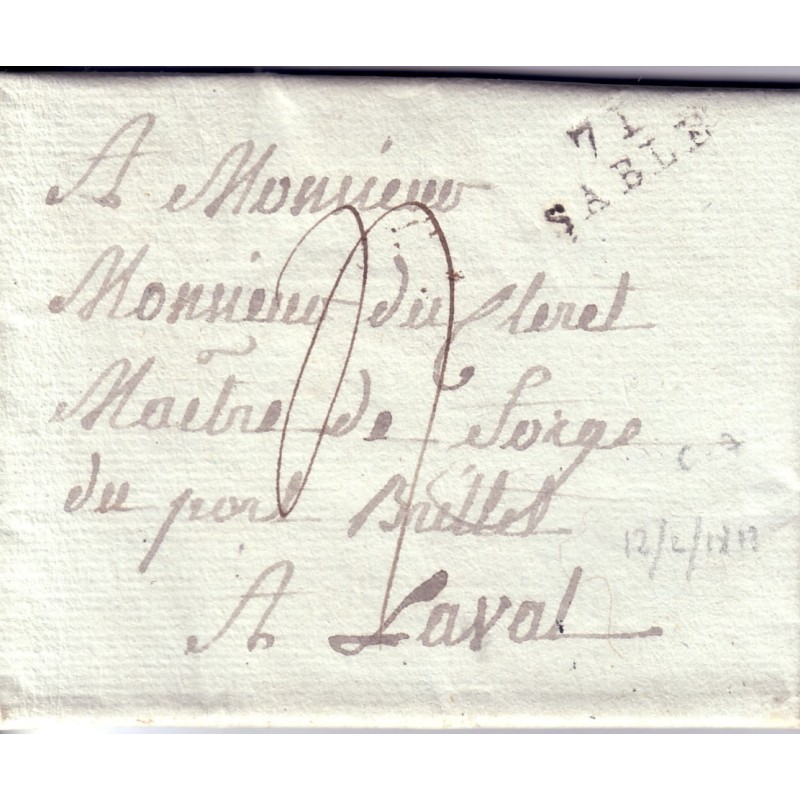 71
SABLE
A Monsieur
Monsieur du Cleret
Maître de Forge
du port Brillet
A Laval